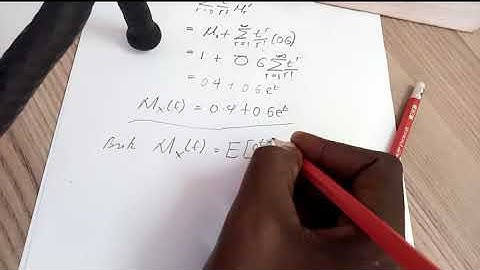 = M₁ + Σ_{r=1}^{∞} t^r/r! (06)
= 1 + 0 6 Σ_{r=1}^{∞} t^r/r!
= 0.4 + 0.6e^t
M_x(t) = 0.4 + 0.6e^t
But M_x(t) = E[